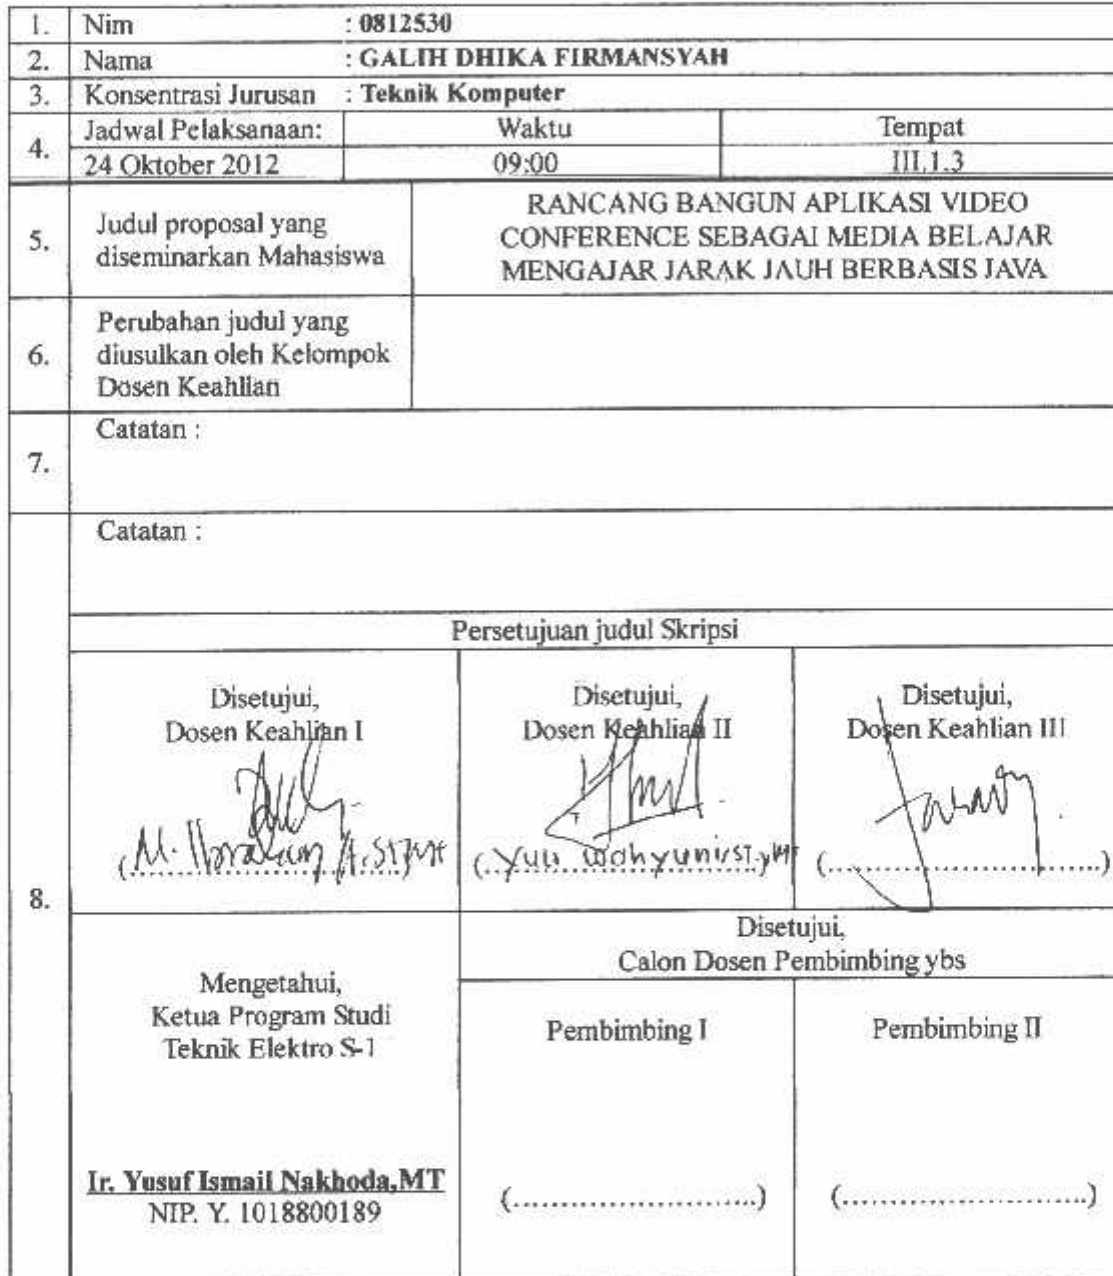 1. Nim : 0812530
2. Nama : GALIH DHIKA FIRMANSYAH
3. Konsentrasi Jurusan : Teknik Komputer
4. Jadwal Pelaksanaan: Waktu Tempat
24 Oktober 2012 09:00 III.1.3
5. Judul proposal yang diseminarkan Mahasiswa
RANCANG BANGUN APLIKASI VIDEO
CONFERENCE SEBAGAI MEDIA BELAJAR
MENGAJAR JARAK JAUH BERBASIS JAVA
6. Perubahan judul yang
diusulkan oleh Kelompok
Dosen Keahlian
7. Catatan :
Catatan :
8.
Persetujuan judul Skripsi
Disetujui,
Dosen Keahlian I
(M. Ibrahim A, ST, MT
Disetujui,
Dosen Keahlian II
(Yuli Wahyuni, ST, MT
Disetujui,
Dosen Keahlian III
(.........................)
Mengetahui,
Ketua Program Studi
Teknik Elektro S-1
Ir. Yusuf Ismail Nakhoda,MT
NIP. Y. 1018800189
Disetujui,
Calon Dosen Pembimbing ybs
Pembimbing I
(.........................)
Pembimbing II
(.........................)